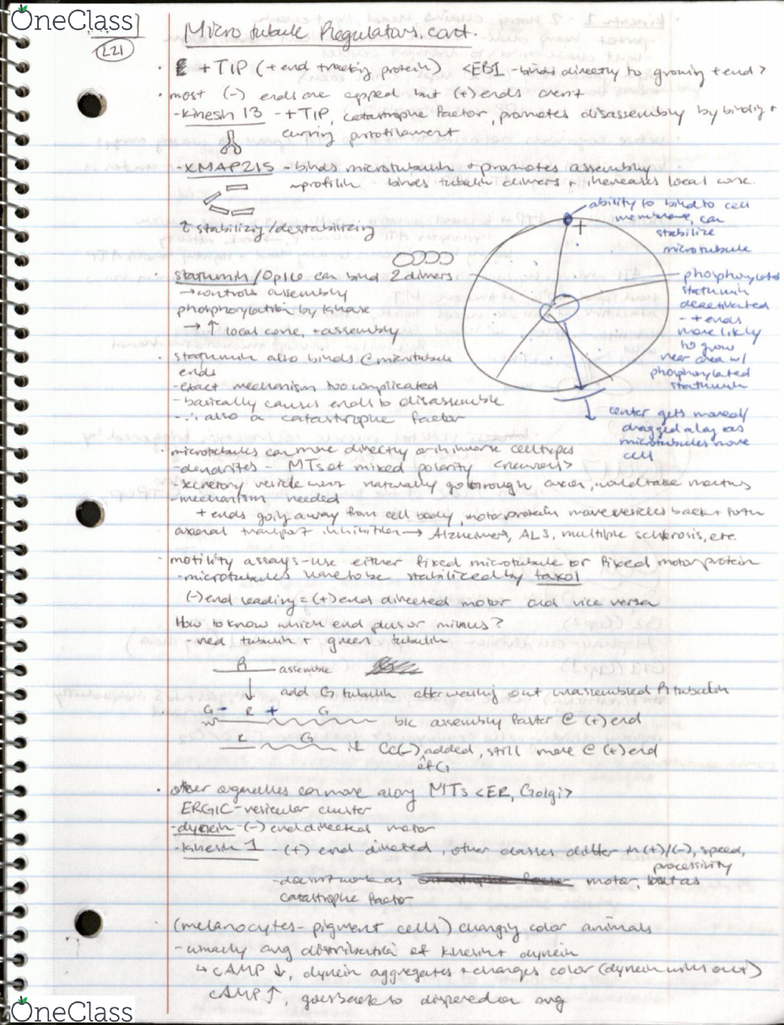 OneClass
L21
Microtubule Regulators, cont.
· +TIP (+end tracking protein) <EB1 - binds directly to growing + end>
· most (-) ends are capped but (+) ends aren't
- kinesin 13 - +TIP, catastrophe factor, promotes disassembly by binding +
curving protofilament
- XMAP215 - binds microtubulin + promotes assembly
~profilin binds tubulin dimers + increases local conc.
stabilizing/destabilizing
ability to bind to cell
membrane, can
stabilize
microtubule
+
· stathmin/Op18 can bind 2 dimers
→ controls assembly
phosphorylation by kinase
→ ↑ local conc, + assembly
phosphorylated
stathmin
deactivated
- + ends
more likely
to grow
near area w/
phosphorylated
stathmin
· stathmin also binds @ microtubule
ends
- exact mechanism too complicated
- basically causes ends to disassemble
∴ also a catastrophe factor
center gets moved/
dragged along as
microtubules move
cell
· microtubules can move directly or in inverse cell types
- dendrites - MTs of mixed polarity <neurons>
- secretory vesicle naturally go through axon, would take months
- mechanism needed
+ ends going away from cell body, motor proteins move vesicles back + forth
axonal transport inhibition → Alzheimers, ALS, multiple sclerosis, etc.
· motility assays - use either fixed microtubule or fixed motor protein
- microtubules have to be stabilized by taxol
(-) end leading = (+) end directed motor and vice versa
How to know which end plus or minus?
- red tubulin + green tubulin
R assemble
↓ add G tubulin after washing out unassembled R tubulin
G - R + G b/c assembly faster @ (+) end
R G CC(-) added, still more @ (+) end
of G
· other organelles can move along MTs <ER, Golgi>
ERGIC - vesicular cluster
- dynein (-) end directed motor
- kinesin 1 - (+) end directed, other classes differ in (+)/(-), speed,
processivity
- doesn't work as motor, but as
catastrophe factor
· (melanocytes - pigment cells) changing color animals
- usually avg distribution of kinesin + dynein
↳ cAMP ↓, dynein aggregates + changes color (dynein wins out)
cAMP ↑, goes back to dispersed or avg
OneClass
OneClass